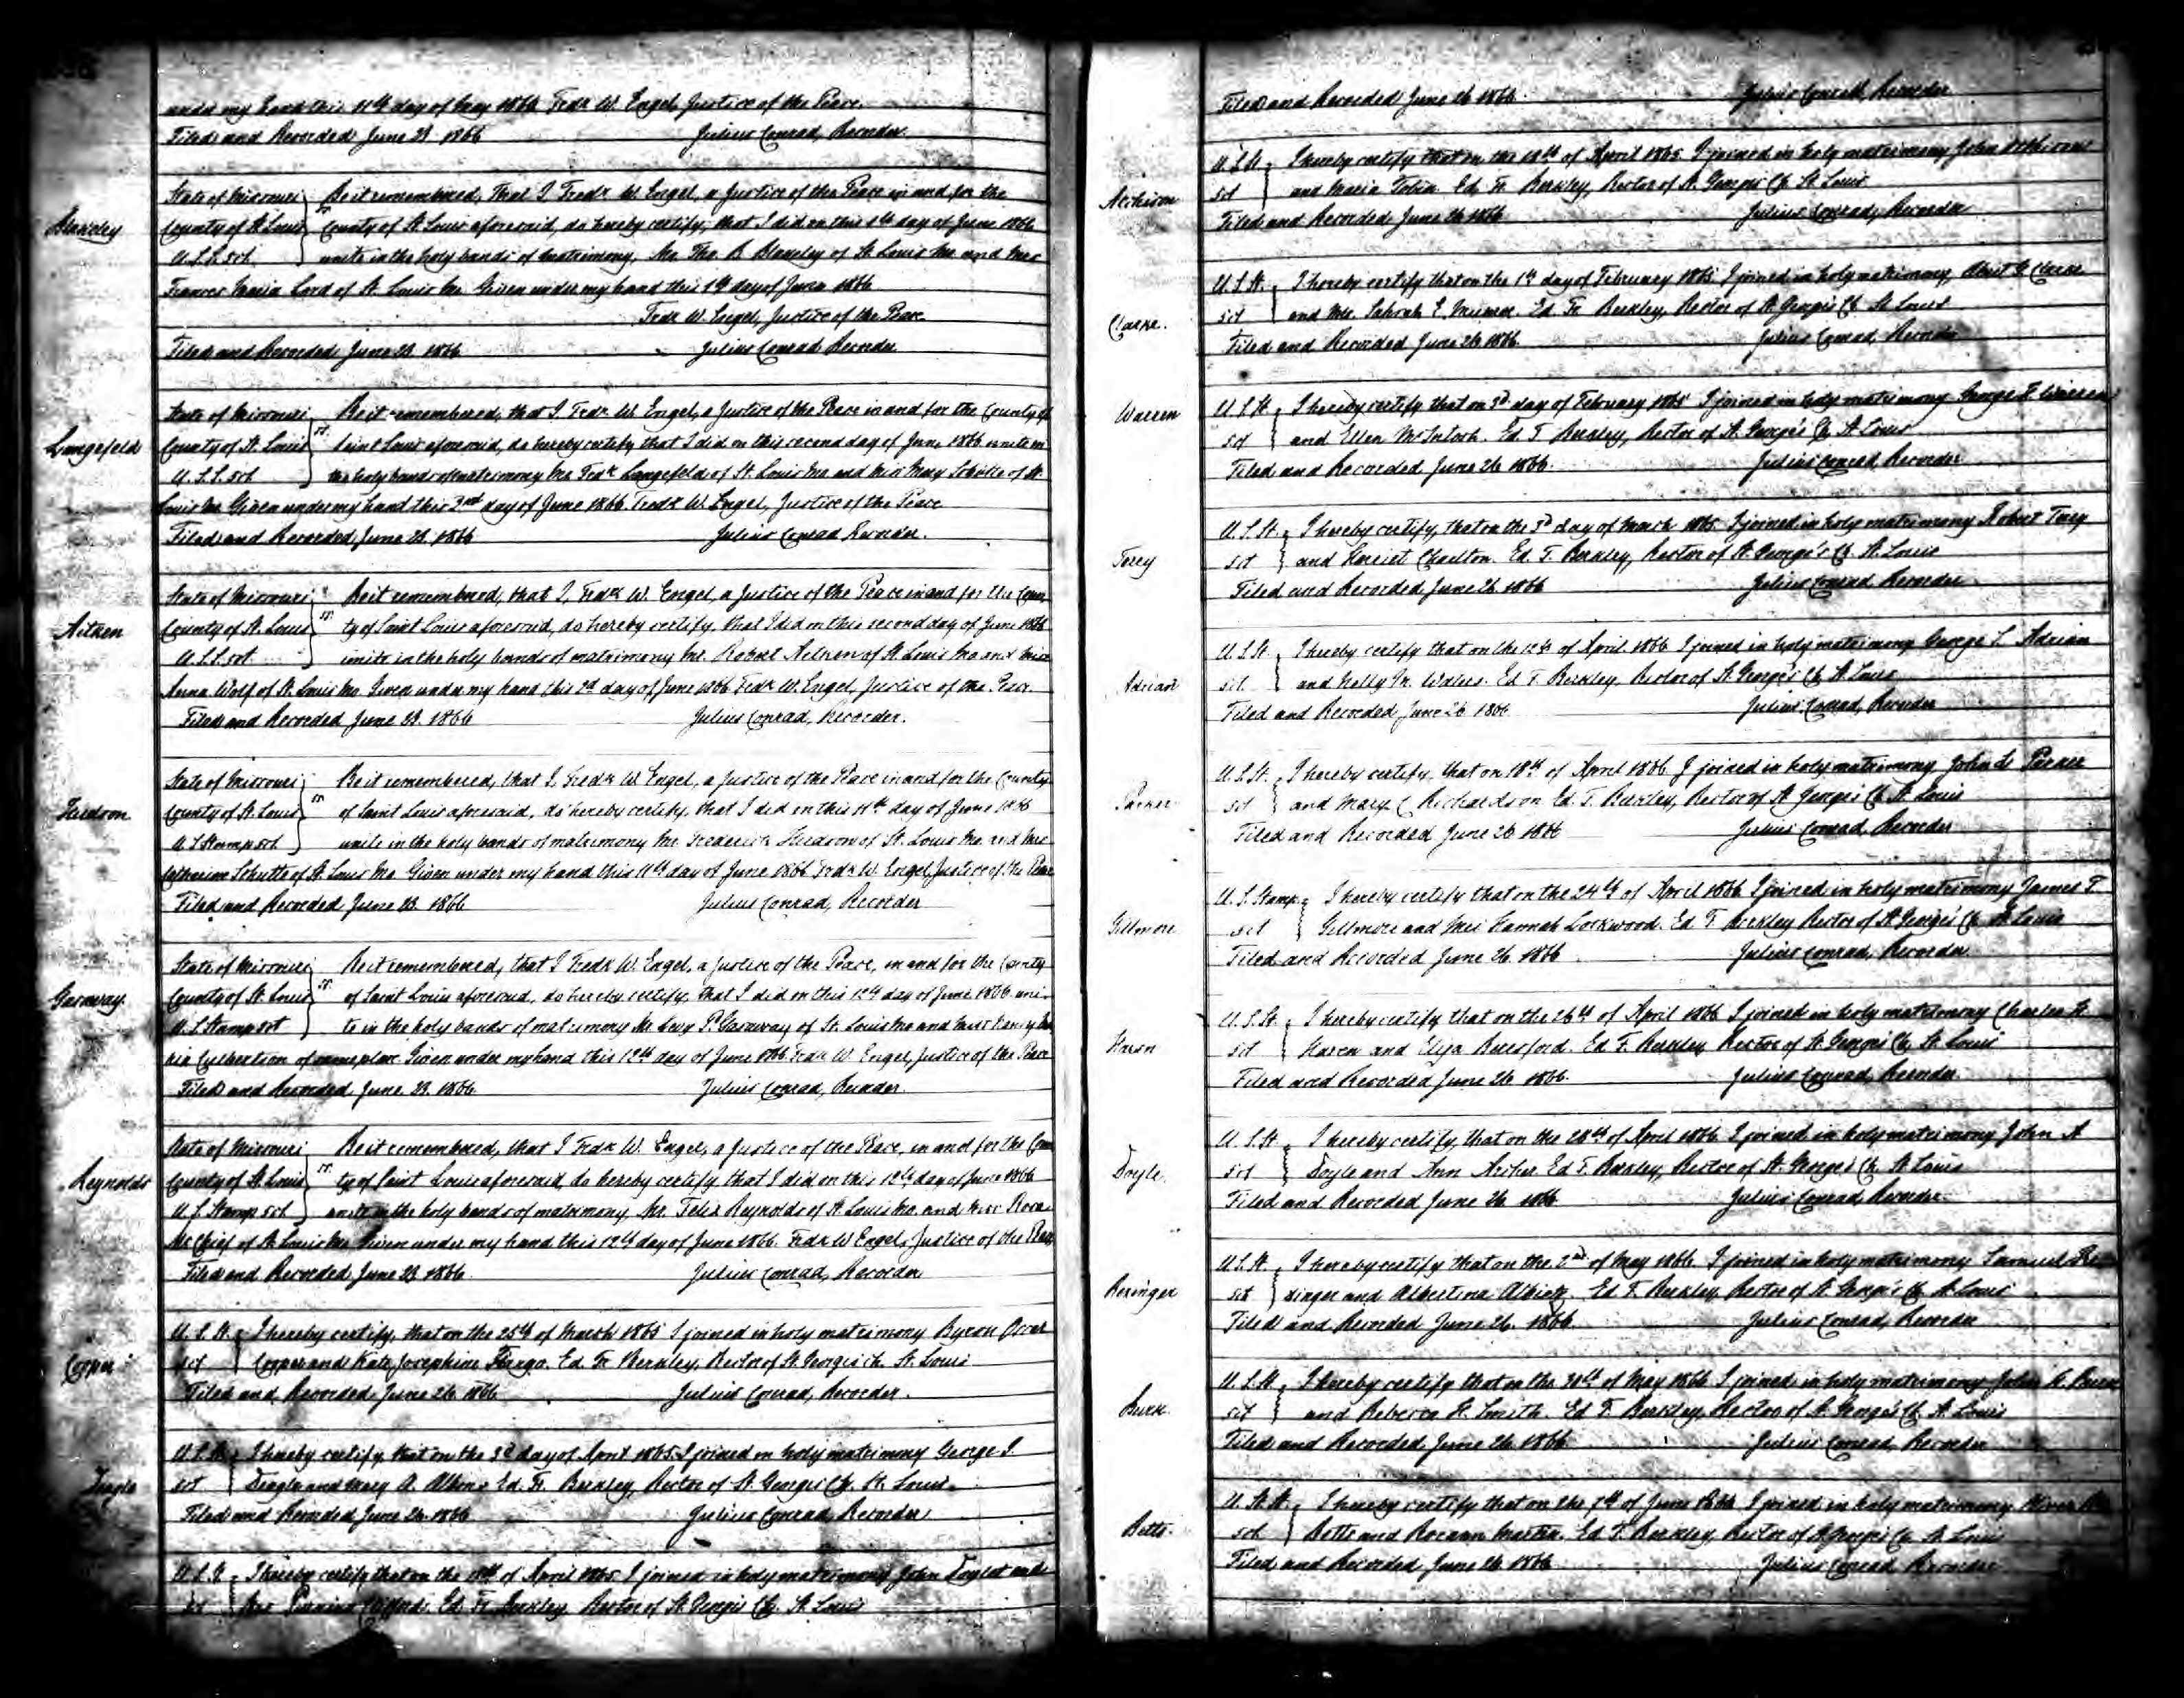 under my hand this 11th day of May 1866 Fredk W. Engel, Justice of the Peace.
Filed and Recorded June 23. 1866 Julius Conrad, Recorder
Blakeley
State of Missouri Be it remembered, That I Fredk W. Engel, a Justice of the Peace in and for the
County of St. Louis ss. County of St Louis aforesaid, do hereby certify, that I did on this day of June 1866
U.S.S. sct. unite in the holy bands of matrimony, Mr. Tho. B. of St Louis Mo and
Frances Maria Lord of St. Louis Mo Given under my hand this day of June 1866
Fredk W. Engel, Justice of the Peace
Filed and Recorded June 23. 1866 Julius Conrad Recorder
Langefeld
State of Missouri Be it remembered, that I, Fredk W. Engel, a Justice of the Peace in and for the County of
County of St. Louis ss. Saint Louis aforesaid, do hereby certify that I did on this second day of June 1866 unite in
U.S.S. sct the holy bands of matrimony Mr. Fredk Langefeld of St. Louis Mo and Miss Mary Schulte of St.
Louis Mo Given under my hand this 2nd day of June 1866 Fredk W. Engel, Justice of the Peace
Filed and Recorded, June 23. 1866 Julius Conrad Recorder.
Aitken
State of Missouri Be it remembered, that I, Fredk W. Engel, a Justice of the Peace in and for the Coun
County of St. Louis ss. ty of Saint Louis aforesaid, do hereby certify, that I did on this second day of June 1866
U.S.S. sct unite in the holy bands of matrimony Mr. Robert Aitken of St Louis Mo and Miss
Anna Wolf of St Louis Mo Given under my hand this 2d day of June 1866 Fredk W. Engel, Justice of the Peace.
Filed and Recorded June 23. 1866 Julius Conrad, Recorder.
State of Missouri Be it remembered, that I, Fredk W. Engel, a Justice of the Peace in and for the County
County of St. Louis ss. of Saint Louis aforesaid, do hereby certify, that I did on this 11th day of June 1866
U.S. Stamp sct. unite in the holy bands of matrimony Mr. Frederick of St. Louis Mo. and
Catherine Schutte of St. Louis Mo Given under my hand this 11th day of June 1866 Fredk W. Engel Justice of the Peace
Filed and Recorded June 23. 1866 Julius Conrad, Recorder
Garaway
State of Missouri Be it remembered, that I Fredk W. Engel, a Justice of the Peace, in and for the County
County of St. Louis ss. of Saint Louis aforesaid, do hereby certify, that I did on this 12th day of June 1866 uni-
U.S. Stamp sct te in the holy bands of matrimony Mr Levy P. Garaway of St. Louis Mo and Miss
Culbertson of same place Given under my hand this 12th day of June 1866 Fredk W. Engel, Justice of the Peace
Filed and Recorded, June. 23. 1866. Julius Conrad, Recorder.
Reynolds
State of Missouri Be it remembered, that I Fredk W. Engel, a Justice of the Peace, in and for the Coun
County of St Louis ss. ty of Saint Louis aforesaid, do hereby certify that I did on this 12th day of June 1866
U.S. Stamp sct unite in the holy bands of matrimony, Mr. Felix Reynolds of St Louis Mo. and Miss Rosa
of St Louis Mo. Given under my hand this 12th day of June 1866. Fredk W Engel, Justice of the Peace
Filed and Recorded June 23. 1866. Julius Conrad, Recorder
Copper
U.S. St. I hereby certify, that on the 25th of March 1865 I joined in holy matrimony Byron
sct Copper and Kate Josephine Fargo. Ed. F. Berkley, Rector of St. Georges Ch. St. Louis
Filed and Recorded June 26 1866 Julius Conrad, Recorder.
U.S. St. I hereby certify, that on the 3d day of April 1865. I joined in holy matrimony George S.
sct and Mary A. Ed. F. Berkley, Rector of St Georges Ch. St. Louis.
Filed and Recorded June 26. 1866 Julius Conrad, Recorder
U.S. St. I hereby certify that on the of April 1865 I joined in holy matrimony John and
sct Clifford. Ed. F. Berkley Rector of St Georges Ch. St. Louis
Filed and Recorded June 26 1866. Julius Conrad, Recorder
Aechison
U.S. St. I hereby certify that on the of April 1865 I joined in holy matrimony John
sct and Maria Tobin Ed. F. Berkley, Rector of St. Georges Ch St Louis
Filed and Recorded June 26 1866 Julius Conrad, Recorder
Clarke.
U.S. St. I hereby certify that on the 1st day of February 1865 I joined in holy matrimony,
sct and Mrs. Sahrah E. Ed. F. Berkley, Rector of St Georges Ch St Louis
Filed and Recorded June 26 1866. Julius Conrad, Recorder
Warren
U.S. St. I hereby certify that on 3d day of February 1865 I joined in holy matrimony George F. Warren
sct and Ellen McIntosh. Ed. F. Berkley, Rector of St. George's Ch St Louis
Filed and Recorded June 26. 1866. Julius Conrad Recorder
Terry
U.S. St. I hereby certify, that on the 3d day of March 1865 I joined in holy matrimony Robert Terry
sct and Harriet Charlton. Ed. F. Berkley, Rector of St. George's Ch St. Louis
Filed and Recorded June 26 1866 Julius Conrad Recorder
Adrian
U.S. St. I hereby certify that on the 12th of April. 1866 I joined in holy matrimony George L. Adrian
sct. and Nelly M. Waters. Ed F. Berkley, Rector of St. George's Ch St Louis
Filed and Recorded June 26 1866 Julius Conrad, Recorder
Parker
U.S. St. I hereby certify, that on 18th of April 1866 I joined in holy matrimony John Parker
sct and Mary C Richardson Ed. F. Berkley, Rector of St Georges Ch St. Louis
Filed and Recorded June 26 1866 Julius Conrad, Recorder
Gillmore
U.S. Stamp I hereby certify that on the 24th of April 1866 I joined in holy matrimony James T.
sct Gillmore and Mrs Hannah Lockwood. Ed F Berkley Rector of St Georges Ch St Louis
Filed and Recorded June 26. 1866 Julius Conrad, Recorder
Haren
U.S. St. I hereby certify that on the 26th of April 1866 I joined in holy matrimony Charles
sct Haren and Eliza Beresford. Ed F. Berkley Rector of St Georges Ch St. Louis
Filed and Recorded June 26 1866. Julius Conrad, Recorder
Doyle.
U.S. St. I hereby certify, that on the 28th of April 1866 I joined in holy matrimony John A
sct Doyle and Ann Archer. Ed F. Berkley, Rector of St. Georges Ch. St Louis
Filed and Recorded June 26 1866 Julius Conrad, Recorder
U.S. St. I hereby certify that on the 2nd of May 1866. I joined in holy matrimony Samuel
sct and Albertina Ed F. Berkley Rector of St Georges Ch St Louis
Filed and Recorded June 26. 1866. Julius Conrad, Recorder
Burk.
U.S. St. I hereby certify that on the 30th of May 1866 I joined in holy matrimony
sct and Rebecca H. Smith. Ed F. Berkley, Rector of St. George's Ch. St Louis
Filed and Recorded June 26 1866. Julius Conrad, Recorder
Betts.
U.S. St. I hereby certify that on the 7th of June 1866 I joined in holy matrimony
sct Betts and Martin. Ed F. Berkley, Rector of St Georges Ch St Louis
Filed and Recorded June 26 1866 Julius Conrad, Recorder